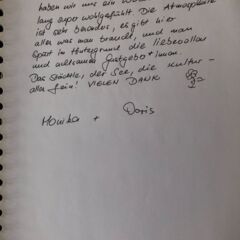 haben wir uns ein
lang super wohlgefühlt. Die Atmosphäre
ist sehr besonders, es gibt hier
alles was man braucht, und man
spürt im Hintergrund die liebevollen
und achtsamen Gastgeber*innen.
Das Städtle, der See, die Kultur -
alles fein! VIELEN DANK
Monika + Doris